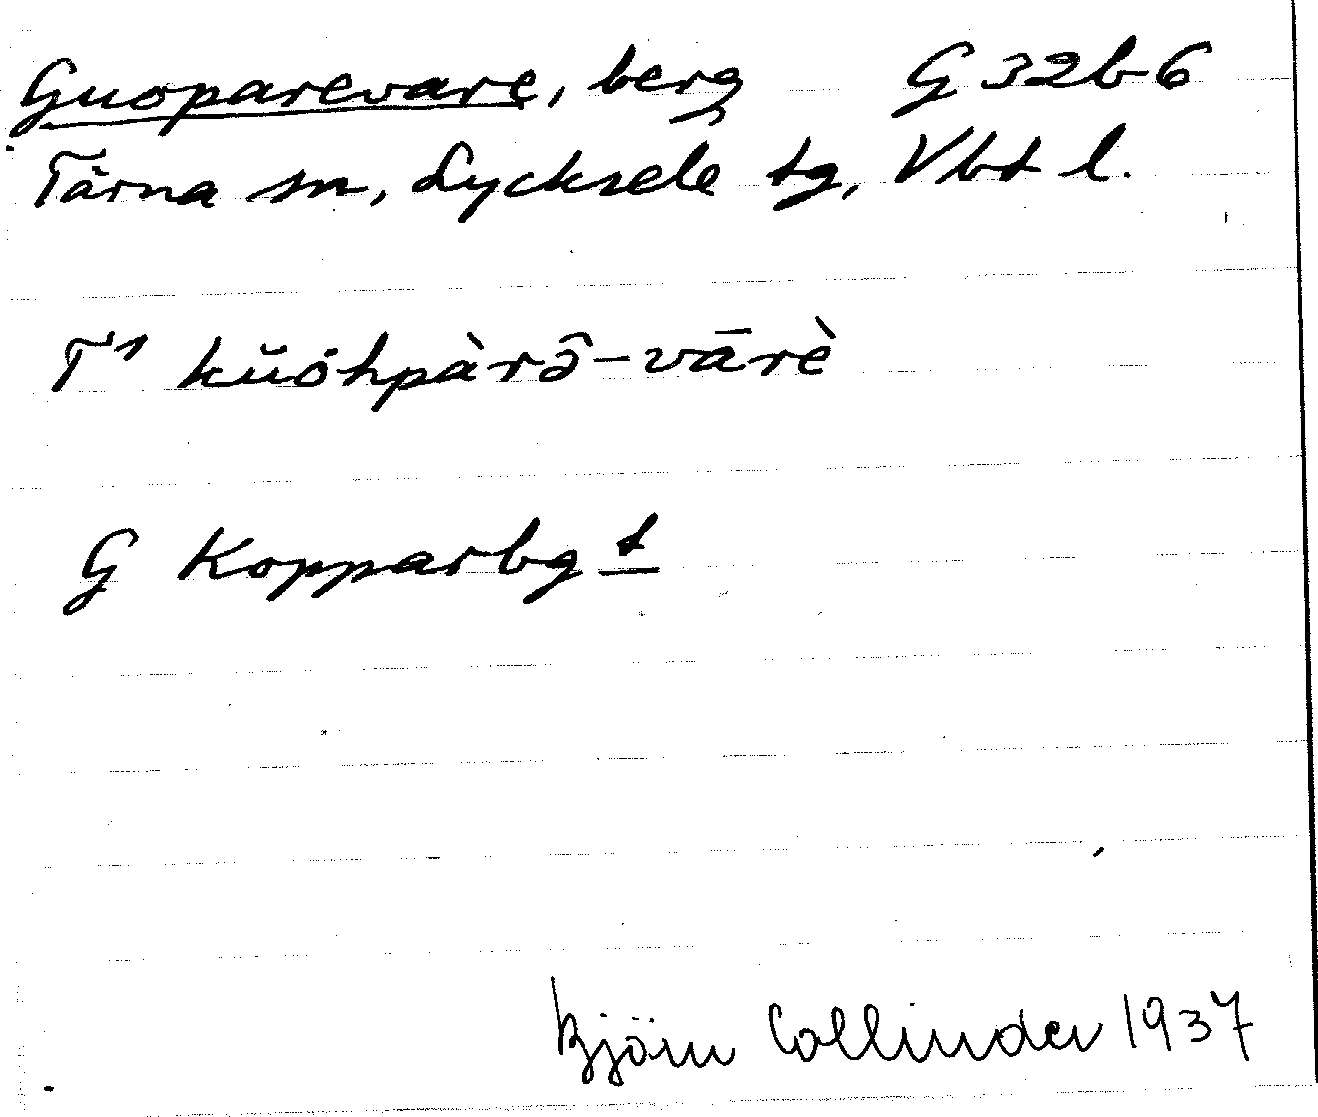 Guoparevare, berg G 32b 6
Tärna sn, Lycksele tg, Vbt l.
T1 kŭȯhpàrô-vārè
G Kopparbg t
Björn Collinder 1937